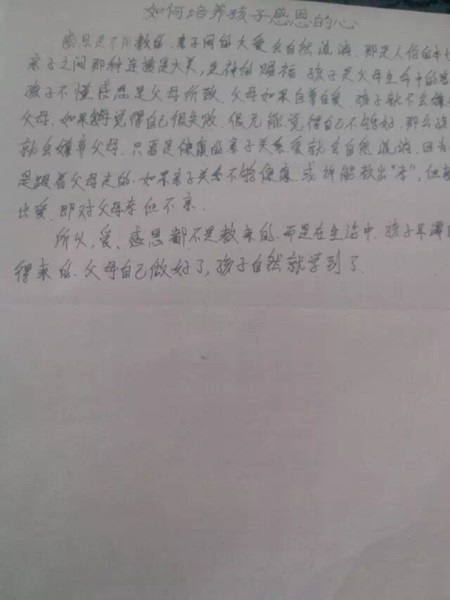 如何培养孩子感恩的心
感恩是不用教的,亲子间的大爱会自然流淌,那是人伯的本
亲子之间那种连接是大美,是神的赐福,孩子是父母生命中的
孩子不懂感恩是父母所致,父母如果自尊自爱,孩子就不会嫌
父母,如果觉得自己很失败,很无能,觉得自己不够好,那么孩
就会嫌弃父母,只要是健康的亲子关系爱就会自然流淌,因为
是跟着父母走的,如果亲子关系不够健康,或许能教出“孝”,但
出爱,即对父母孝但不亲.
所以,爱、感恩都不是教来的,而是在生活中,孩子耳濡
得来的.父母自己做好了,孩子自然就学到了.